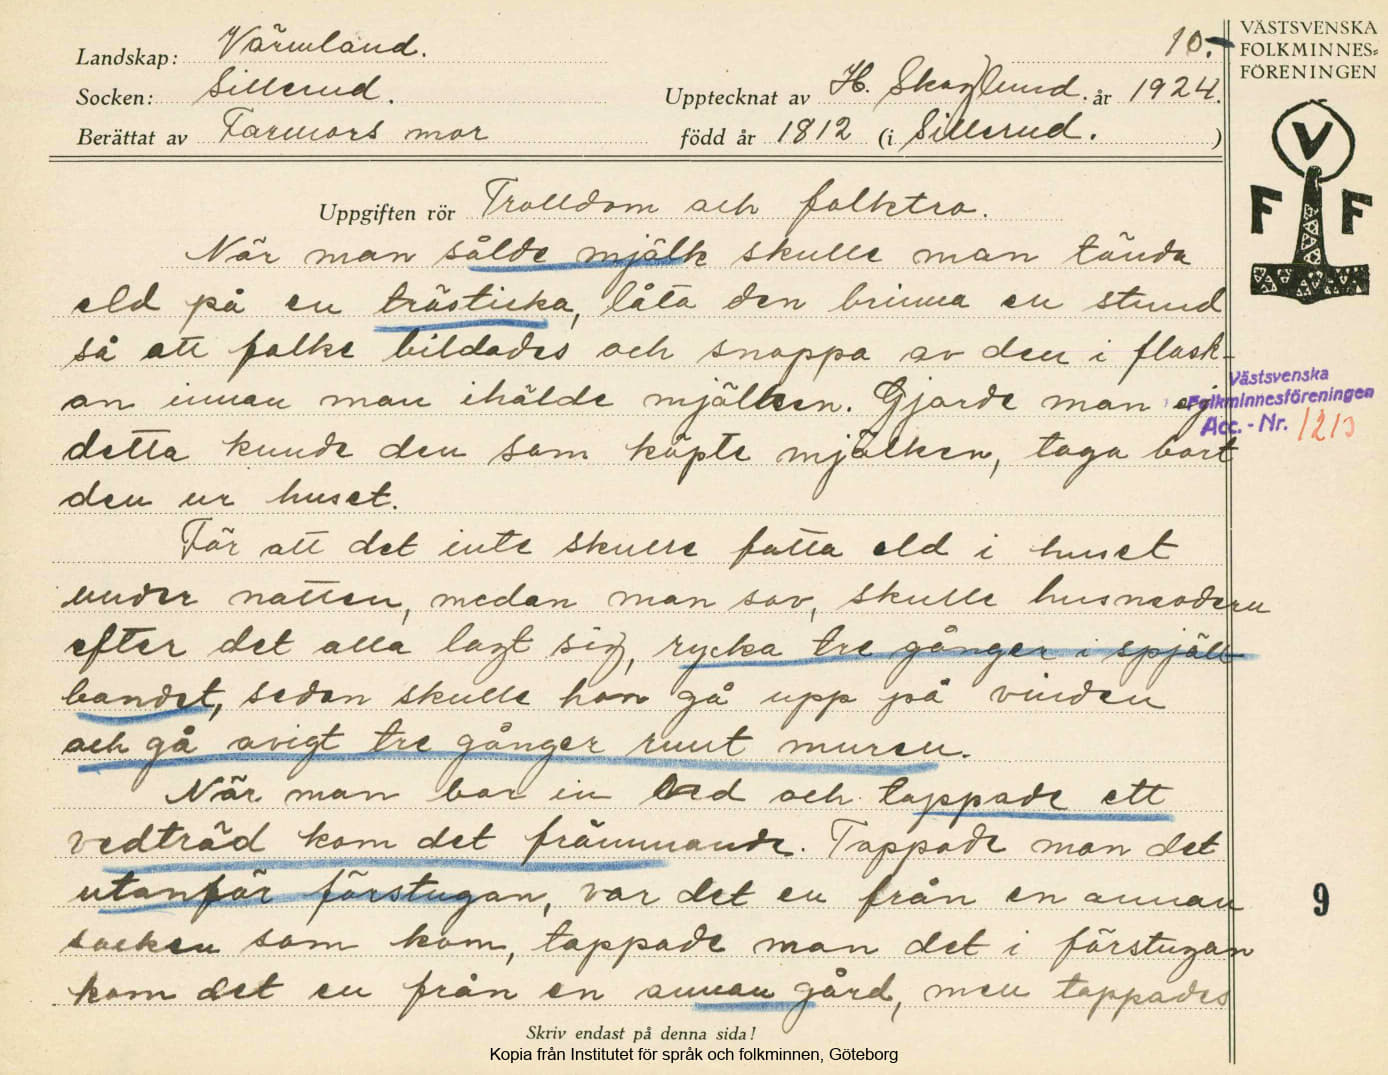 Landskap: Värmland.
Socken: Sillerud.
Berättat av Farmors mor
10.-
Upptecknat av H. Skoglund. år 1924.
född år 1812 (i Sillerud.)
VÄSTSVENSKA
FOLKMINNES=
FÖRENINGEN
V
F F
Uppgiften rör Trolldom och folktro.
När man sålde mjölk skulle man tända
eld på en trästicka, låta den brinna en stund
så att falke bildades och snoppa av den i flask-
an innan man ihälde mjölken. Gjorde man ej
detta kunde den som köpte mjölken, taga bort
den ur huset.
För att det inte skulle fatta eld i huset
under natten, medan man sov, skulle husmodern
efter det alla lagt sig, rycka tre gånger i spjäll
bandet, sedan skulle hon gå upp på vinden
och gå avigt tre gånger runt muren.
När man bar in ved och tappade ett
vedträd kom det främmande. Tappade man det
utanför förstugan, var det en från en annan
socken som kom, tappade man det i förstugan
kom det en från en annan gård, men tappades
Västsvenska
Folkminnesföreningen
Acc. - Nr. 1213
9
Skriv endast på denna sida!
Kopia från Institutet för språk och folkminnen, Göteborg